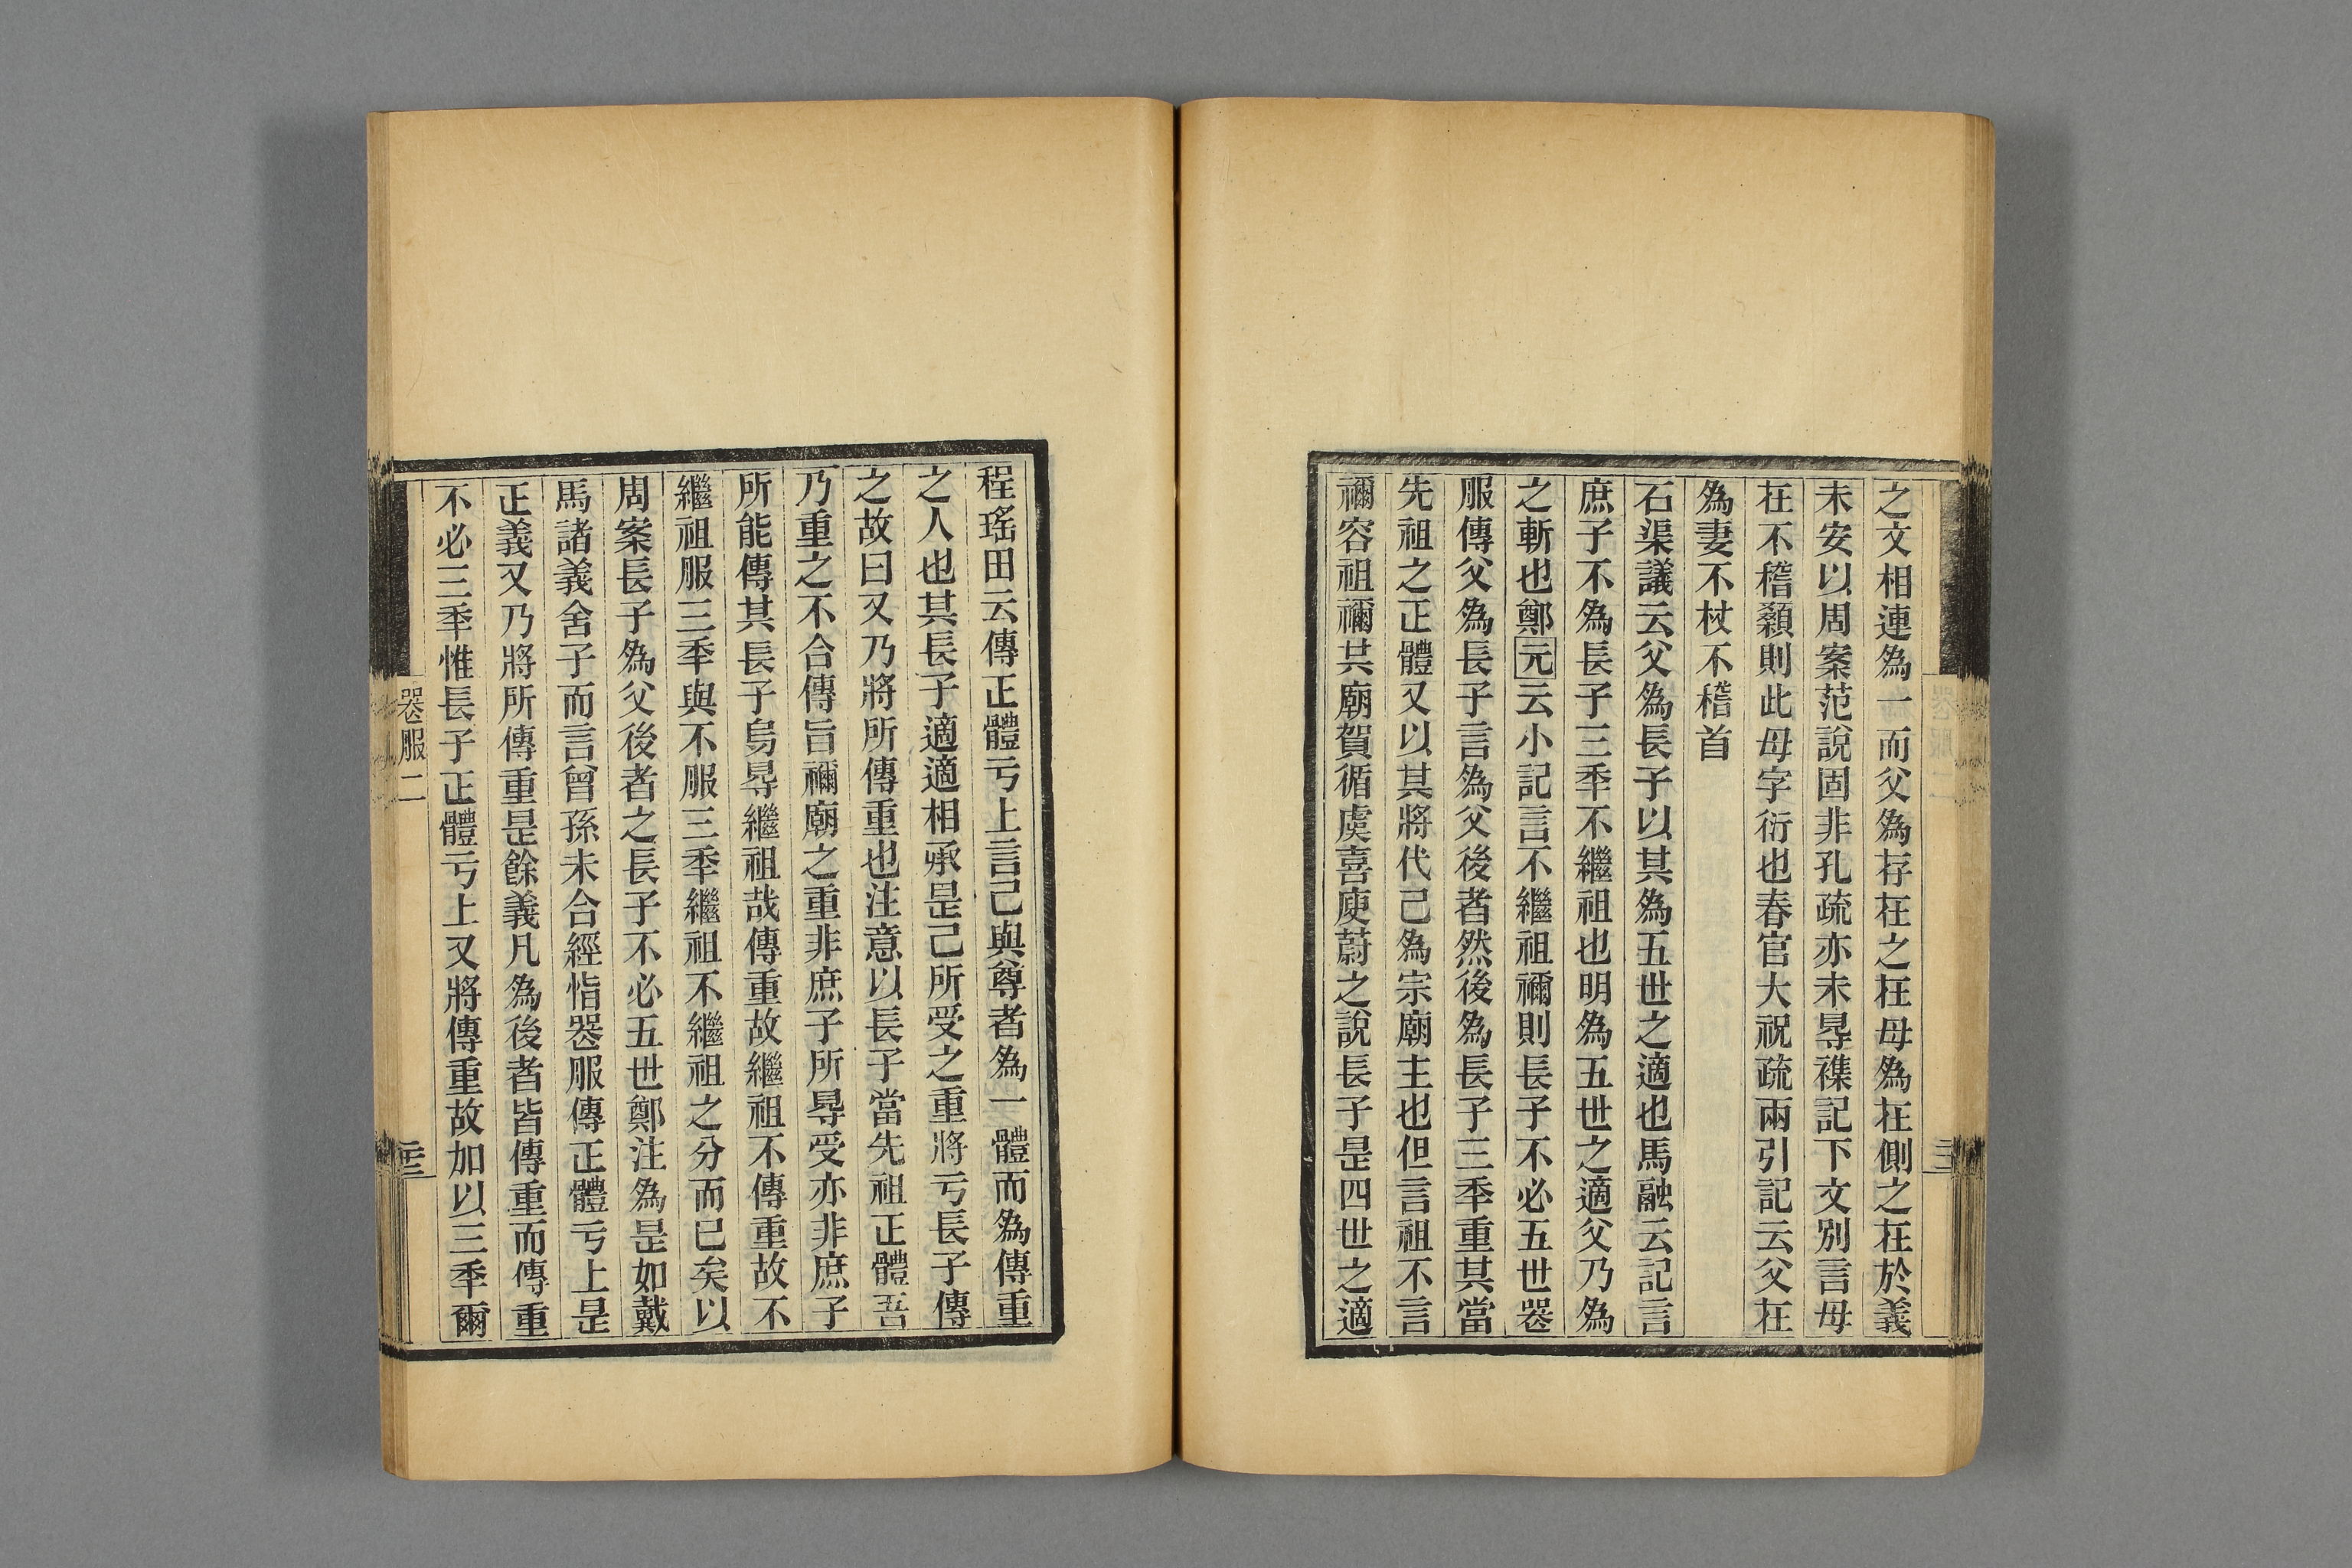 之文相連爲一而父爲存在之在母爲在側之在於義
未安以周案范說固非孔疏亦未㝵襍記下文別言母
在不稽顙則此母字衍也春官大祝疏兩引記云父在
爲妻不杖不稽首
石渠議云父爲長子以其爲五世之適也馬融云記言
庶子不爲長子三秊不繼祖也明爲五世之適父乃爲
之斬也鄭元云小記言不繼祖禰則長子不必五世喪
服傳父爲長子言爲父後者然後爲長子三秊重其當
先祖之正體又以其將代己爲宗廟主也但言祖不言
禰容祖禰共廟賀循虞喜庾蔚之說長子是四世之適
程瑤田云傳正體亏上言己與尊者爲一體而爲傳重
之人也其長子適適相承是己所受之重將亏長子傳
之故曰又乃將所傳重也注意以長子當先祖正體吾
乃重之不合傳旨禰廟之重非庶子所㝵受亦非庶子
所能傳其長子烏㝵繼祖哉傳重故繼祖不傳重故不
繼祖服三秊與不服三秊繼祖不繼祖之分而已矣以
周案長子爲父後者之長子不必五世鄭注爲是如戴
馬諸義舍子而言曾孫未合經恉喪服傳正體亏上是
正義又乃將所傳重是餘義凡爲後者皆傳重而傳重
不必三秊惟長子正體亏上又將傳重故加以三秊爾
喪服二